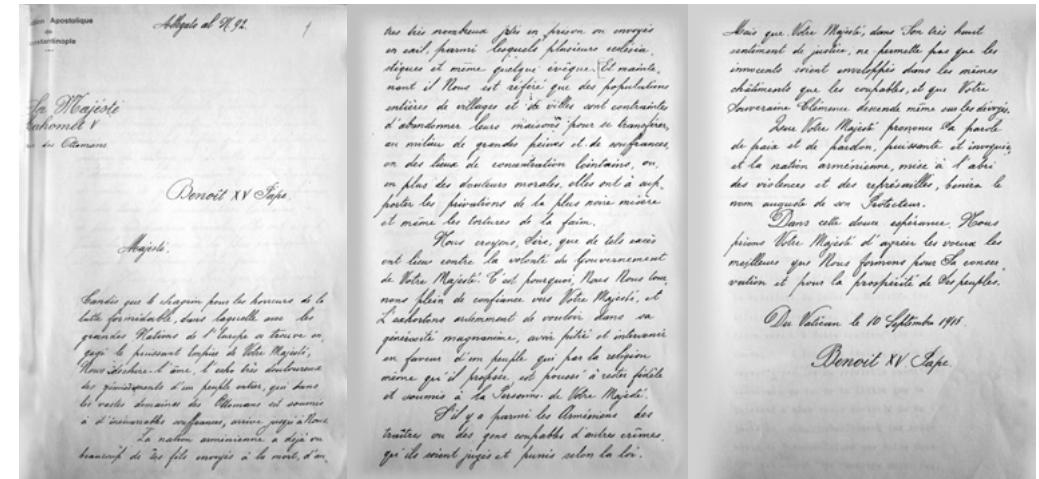 Apostolique
de
Constantinople
Allegato al N. 92.
Sa Majesté
Mahomet V
des Ottomans
Benoît XV Pape.
Majesté.
Tandis que le chagrin pour les horreurs de la
lutte formidable, dans laquelle avec les
grandes Nations de l'Europe se trouve en
gagé le puissant Empire de Votre Majesté,
Nous déchire l'âme, l'écho très douloureux
des gémissements d'un peuple entier, qui dans
les vastes domaines des Ottomans est soumis
à d'inénarrables souffrances, arrive jusqu'à Nous.
La nation arménienne a déjà vu
beaucoup de ses fils envoyés à la mort, d'au
tres très nombreux jetés en prison ou envoyés
en exil, parmi lesquels plusieurs ecclésia
stiques et même quelque évêque. Et mainte
nant il Nous est référé que des populations
entières de villages et de villes sont contraintes
d'abandonner leurs maisons pour se transférer,
au milieu de grandes peines et de souffrances,
en des lieux de concentration lointains, ou,
en plus des douleurs morales, elles ont à sup
porter les privations de la plus noire misère
et même les tortures de la faim.
Nous croyons, Sire, que de tels excès
ont lieu contre la volonté du Gouvernement
de Votre Majesté. C'est pourquoi, Nous Nous tour
nons plein de confiance vers Votre Majesté, et
L'exhortons ardemment de vouloir dans sa
générosité magnanime, avoir pitié et intervenir
en faveur d'un peuple qui par la religion
même qu'il professe, est poussé à rester fidèle
et soumis à la Personne de Votre Majesté.
S'il y a parmi les Arméniens des
traîtres ou des gens coupables d'autres crimes,
qu'ils soient jugés et punis selon la loi.
Mais que Votre Majesté, dans Son très haut
sentiment de justice, ne permette pas que les
innocents soient enveloppés dans les mêmes
châtiments que les coupables, et que Votre
Souveraine Clémence descende même sur les
Que Votre Majesté prononce Sa parole
de paix et de pardon, puissante et invoquée,
et la nation arménienne, mise à l'abri
des violences et des représailles, bénira le
nom auguste de son Protecteur.
Dans cette douce espérance, Nous
prions Votre Majesté d'agréer les vœux les
meilleurs que Nous formons pour Sa conser
vation et pour la prospérité de Ses peuples.
Du Vatican le 10 Septembre 1915.
Benoît XV Pape.